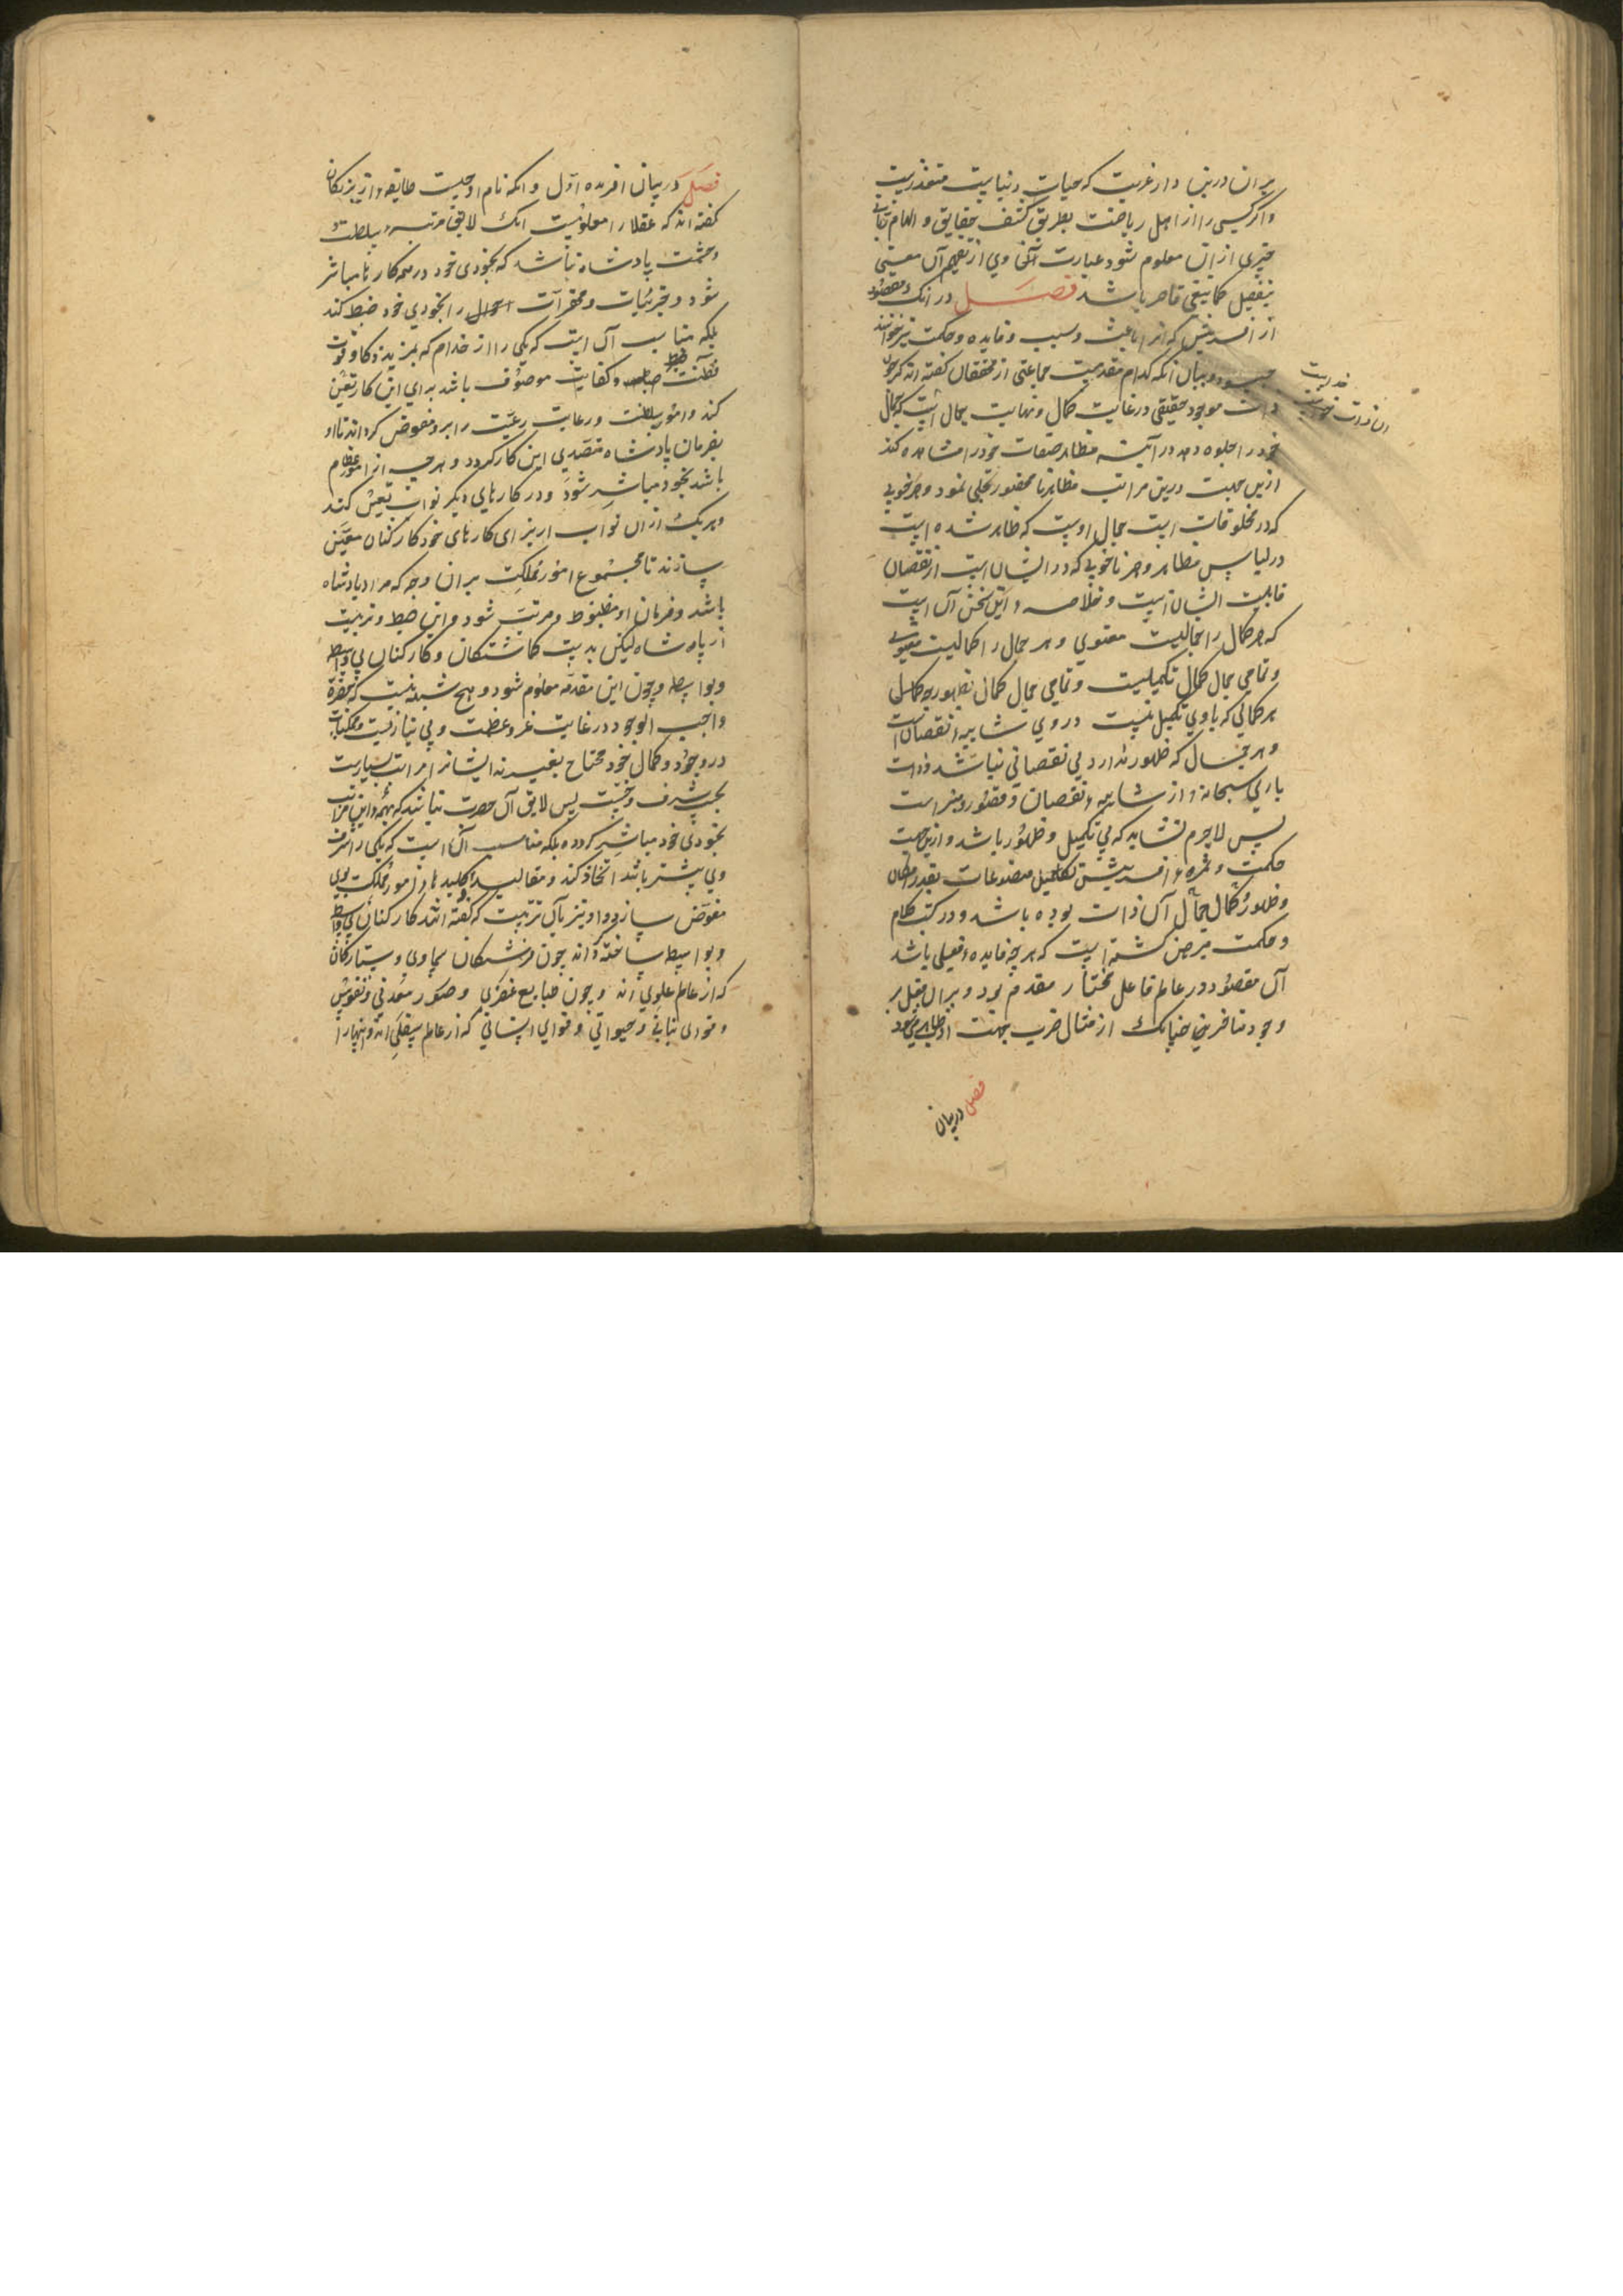 بر ان درین دار غربت که حیات دنیاییست متعذریست
و اگر کسی را از اهل ریاضت بطریق کشف حقایق و الهام ربانی
چیزی از ان معلوم شود عبارت آنی وی از تفهیم آن معنی
بتفصیل کما ینبغی قاصر باشد فصل در انکه مقصود
از افرینش که انرا باعث و سبب و فایده و حکمت نیز خوانند
چه بود و بیان انکه کدام مقدمست جماعتی از محققان گفته اند که چون
ذات موجود حقیقی در غایت کمال و نهایت جمال است که جمال
خود را جلوه دهد در آیینه مظاهر صفات خود را مشاهده کند
ازین جهت درین مراتب مظاهر نامحصور تجلی نمود و هر خوبی
که در مخلوقات است جمال اوست که ظاهر شده است
در لباس مظاهر و هر ناخوبی که در ایشان است از نقصان
قابلیت ایشان است و خلاصه این سخن آن است
که هر کمال را جمالیست معنوی و هر جمال را کمالیست معنوی
و تمامی جمال کمال تکمیلست و تمامی جمال کمال بظهور چه کمال
هر کمالی که با وی تکمیل نیست در وی شایبه نقصان است
و هر جمال که ظهور ندارد بی نقصانی نباشد و ذات
باری سبحانه از شایبه نقصان و قصور مبراست
پس لاجرم نشاید که بی تکمیل و ظهور باشد و ازین جهت
حکمت و ثمره افرینش تکمیل مصنوعات بقدر امکان
و ظهور کمال جمال آن ذات بوده باشد و در کتب کلام
و حکمت مبرهن گشته است که هر چه فایده فعلی باشد
آن مقصود در عالم فاعل مختار مقدم بود و بر آن فعل بر
وجود متاخر چنانک از مثال قریب جهت او ظاهر می شود
فصل در بیان
فصل در بیان افریده اول و انکه نام او چیست طایفه از بزرگان
گفته اند که عقلا را معلومست انک لایق مرتبه سلطنت
و حشمت پادشاه نباشد که بخودی خود در همه کارها مباشر
شود و جزئیات و محقرات احوال را بخودی خود ضبط کند
بلکه مناسب آن است که یکی را از خدام که بمزید ذکا و قوت
فطنت ضبط و کفایت موصوف باشد برای این کار تعیین
کند و امور سلطنت و رعایت رعیت را برو مفوض گرداند تا او
بفرمان پادشاه متصدی این کار گردد و هر چه از امور عظام
باشد بخود مباشر شود و در کارهای دیگر نواب تعیین کند
و هر یک از ان نواب از برای کارهای خود کارکنان معین
سازند تا مجموع امور مملکت بر ان وجه که مراد پادشاه
باشد و فرمان او مضبوط و مرتب شود و این ضبط و ترتیب
از پادشاه لیکن بدست گماشتگان و کارکنان بی واسطه
و بواسطه و چون این مقدمه معلوم شود و هیچ شبهه نیست که حضرت
واجب الوجود در غایت عز و عظمت و بی نیازیست و ممکنات
در وجود و کمال خود محتاج بغیرند ایشانرا مراتب بسیارست
بحسب شرف و خست پس لایق آن حضرت نباشد که بهمه این مراتب
بخودی خود مباشر گردد بلکه مناسب آن است که یکی را شرف
وی بیشتر باشد اتخاذ کند و مقالید و کلیدهای امور مملکت بوی
مفوض سازد و او نیز بآن ترتیب که گفته اند کارکنان بی واسطه
و بواسطه ساخته اند چون فرشتگان سماوی و ستارگان
که از عالم علوی اند و چون طبایع عنصری و صور معدنی و نفوس
و قوای نباتی و حیوانی و قوای انسانی که از عالم سفلی اند و اینها را